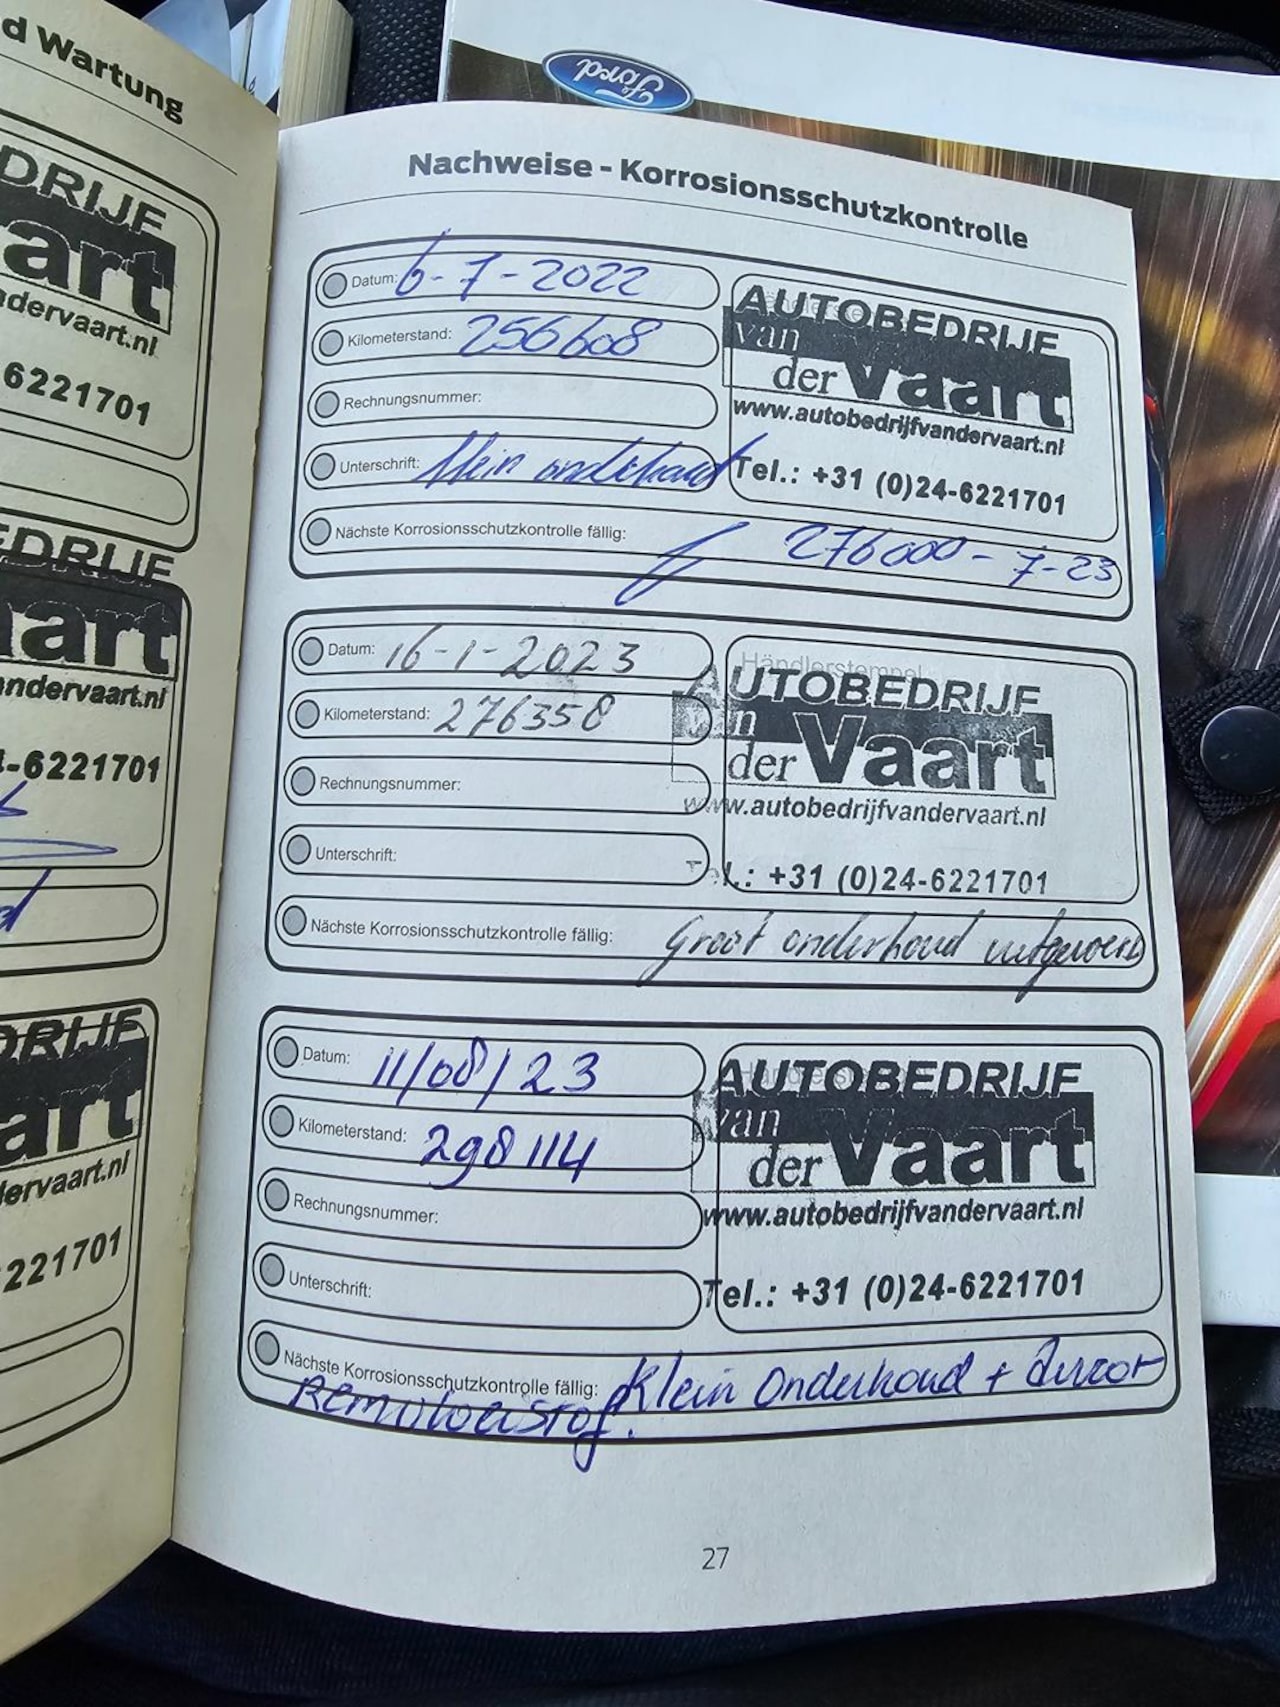 d Wartung
DRIJF
aart
ndervaart.nl
6221701
EDRIJF
aart
andervaart.nl
4-6221701
d
DRIJF
art
dervaart.nl
221701
Ford
Nachweise - Korrosionsschutzkontrolle
Datum: 6-7-2022
Kilometerstand: 256608
Rechnungsnummer:
Unterschrift: klein onderhoud
Nächste Korrosionsschutzkontrolle fällig: 276000 - 7-23
AUTOBEDRIJF
van
der Vaart
www.autobedrijfvandervaart.nl
Tel.: +31 (0)24-6221701
Datum: 16-1-2023
Kilometerstand: 276358
Rechnungsnummer:
Unterschrift:
Nächste Korrosionsschutzkontrolle fällig: Groot onderhoud uitgevoerd
Händlerstempel
AUTOBEDRIJF
van
der Vaart
www.autobedrijfvandervaart.nl
Tel.: +31 (0)24-6221701
Datum: 11/08/23
Kilometerstand: 298114
Rechnungsnummer:
Unterschrift:
Nächste Korrosionsschutzkontrolle fällig: Klein Onderhoud +
Remvloeistof.
AUTOBEDRIJF
van
der Vaart
www.autobedrijfvandervaart.nl
Tel.: +31 (0)24-6221701
27